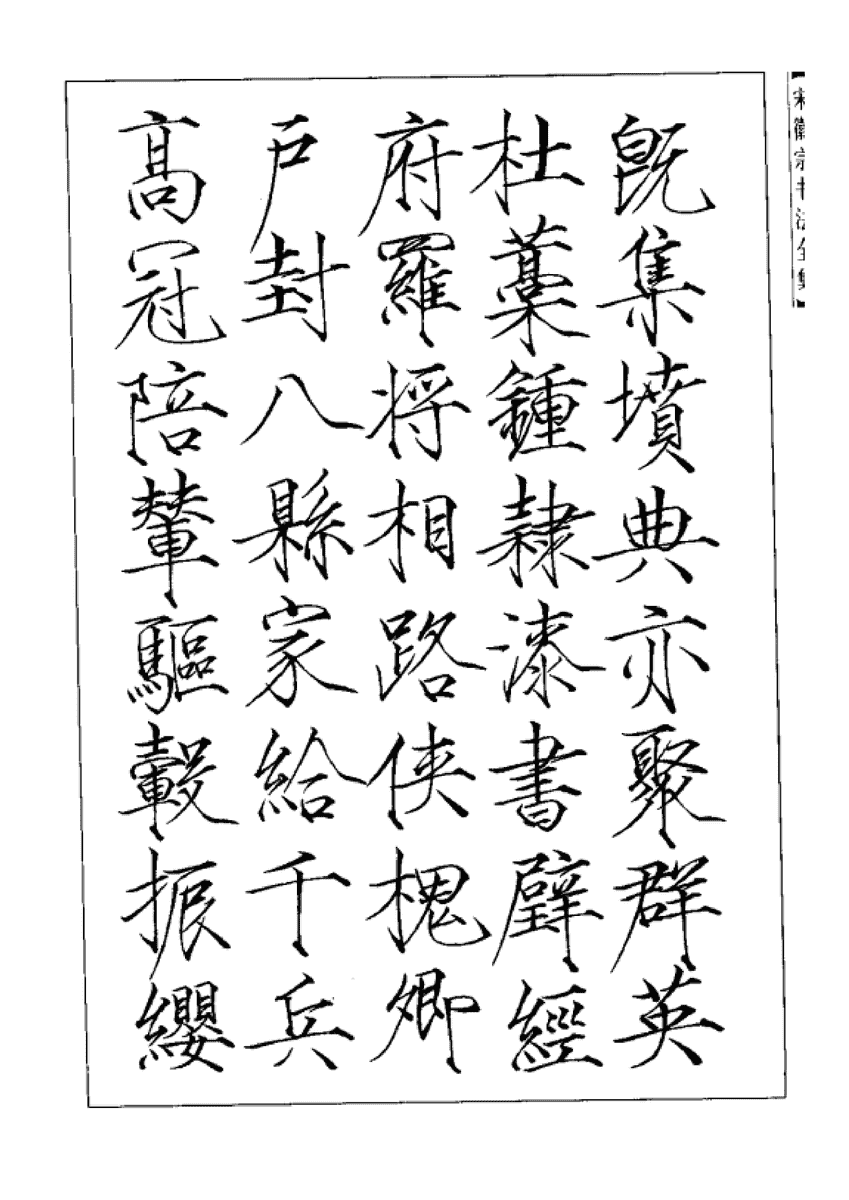 宋徽宗书法全集
既集墳典亦聚群英
杜藁鍾隸漆書壁經
府羅將相路俠槐卿
戶封八縣家給千兵
高冠陪輦驅轂振纓